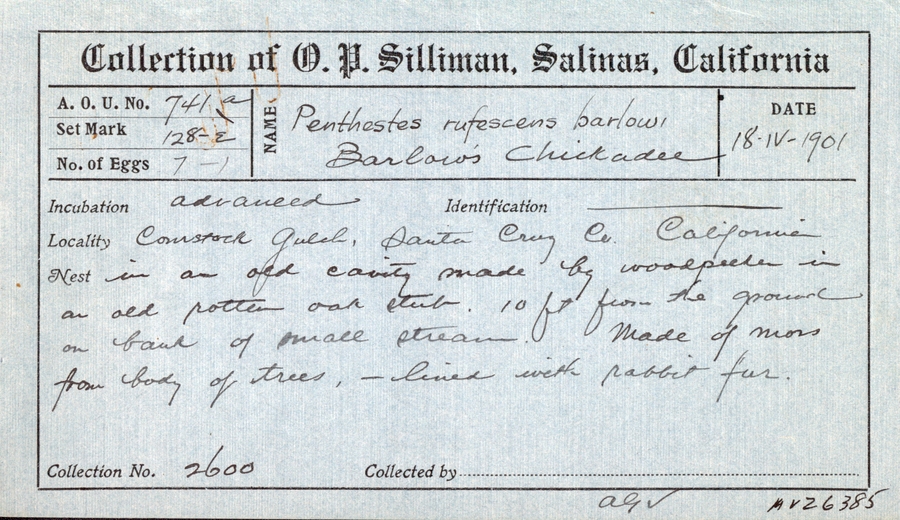 Collection of O. P. Silliman, Salinas, California
A. O. U. No. 741.a
Set Mark 128-2
No. of Eggs 7 -1
NAME Penthestes rufescens barlowi
Barlow's Chickadee
DATE
18-IV-1901
Incubation advanced Identification
Locality Comstock Gulch, Santa Cruz Co. California
Nest in an old cavity made by woodpecker in
an old rotten oak stub. 10 ft from the ground
on bank of small stream. Made of moss
from body of trees, — lined with rabbit fur.
Collection No. 2600 Collected by
AV26385